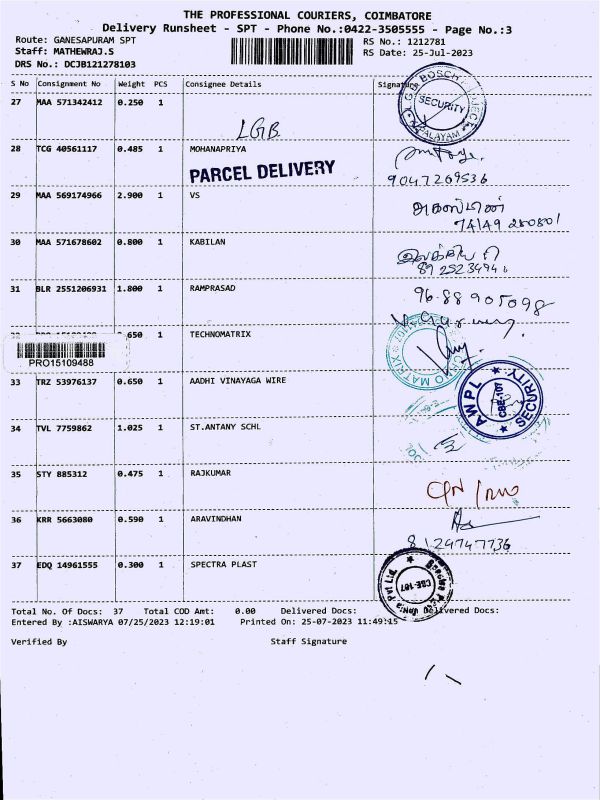 THE PROFESSIONAL COURIERS, COIMBATORE
Delivery Runsheet - SPT - Phone No.:0422-3505555 - Page No.:3
Route: GANESAPURAM SPT RS No.: 1212781
Staff: MATHEWRAJ.S RS Date: 25-Jul-2023
DRS No.: DCJB121278103
S No Consignment No Weight PCS Consignee Details Signature
27 MAA 571342412 0.250 1
BOSCH
SECURITY
LGB
28 TCG 40561117 0.485 1 MOHANAPRIYA
PARCEL DELIVERY
9047269536
29 MAA 569174966 2.900 1 VS
30 MAA 571678602 0.800 1 KABILAN
31 BLR 2551206931 1.800 1 RAMPRASAD
96 88 905098
.650 1 TECHNOMATRIX
PRO15109488
33 TRZ 53976137 0.650 1 AADHI VINAYAGA WIRE
AWPL SECURITY
CBE-107
34 TVL 7759862 1.025 1 ST.ANTANY SCHL
35 STY 885312 0.475 1 RAJKUMAR
36 KRR 5663080 0.590 1 ARAVINDHAN
8129747736
37 EDQ 14961555 0.300 1 SPECTRA PLAST
Total No. Of Docs: 37 Total COD Amt: 0.00 Delivered Docs: Delivered Docs:
Entered By :AISWARYA 07/25/2023 12:19:01 Printed On: 25-07-2023 11:49:15
Verified By Staff Signature